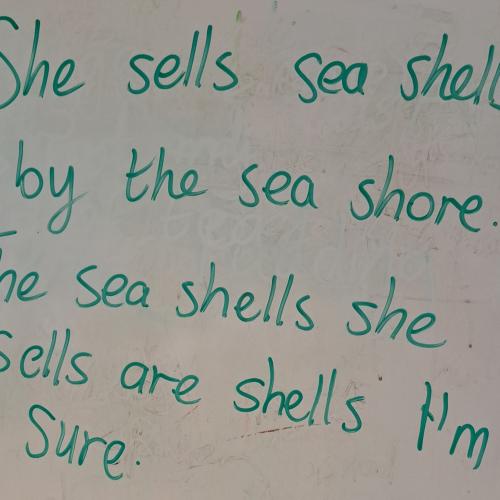 She sells sea shell
by the sea shore.
he sea shells she
sells are shells I'm
Sure.